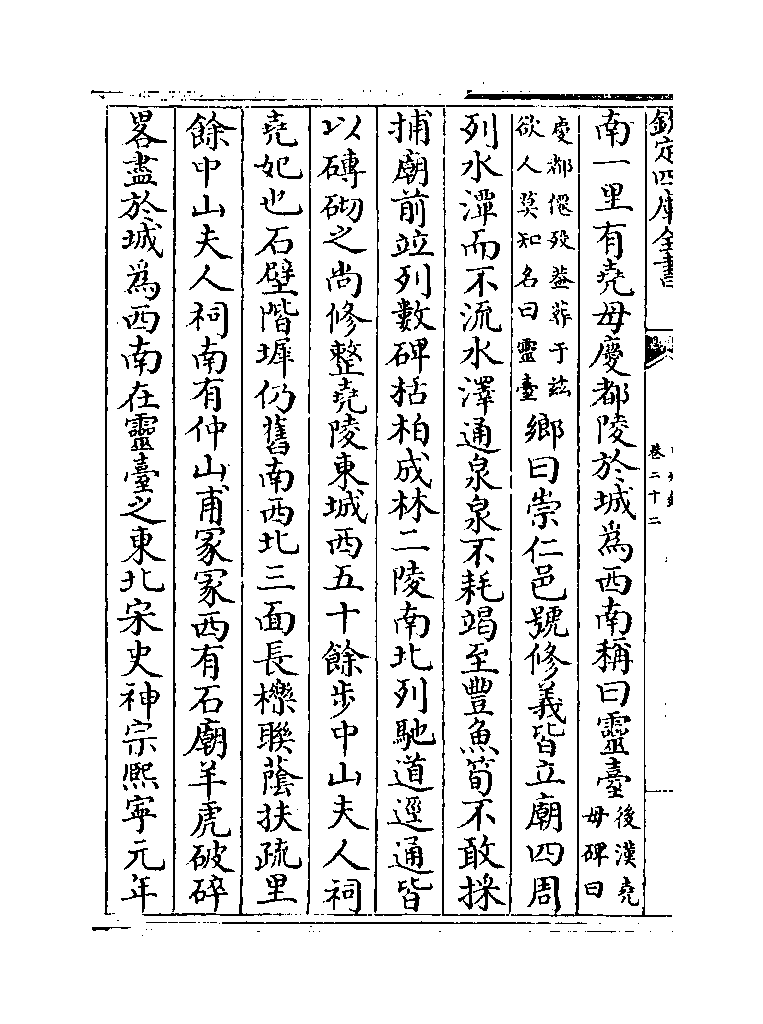 欽定四庫全書
卷二十二
南一里有堯母慶都陵於城為西南稱曰靈臺後漢堯母碑曰
慶都僊殁葢葬于兹欲人莫知名曰靈臺鄉曰崇仁邑號修義皆立廟四周
列水潭而不流水澤通泉泉不耗竭至豐魚筍不敢採
捕廟前竝列數碑栝柏成林二陵南北列馳道逕通皆
以磚砌之尚修整堯陵東城西五十餘步中山夫人祠
堯妃也石壁階墀仍舊南西北三面長櫟聯蔭扶疏里
餘中山夫人祠南有仲山甫冢冢西有石廟羊虎破碎
畧盡於城為西南在靈臺之東北宋史神宗熙寧元年